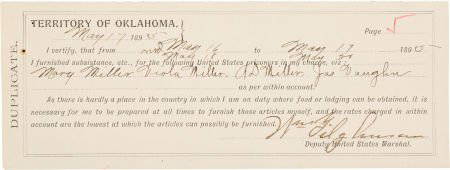 TERRITORY OF OKLAHOMA.
DUPLICATE.
Page 5
May 17 1895
I certify, that from May 16 to May 17 1895
and May 18 May 20
I furnished subsistance, etc., for the following United States prisoners in my charge, viz:
Mary Miller Viola Miller, Ed Miller, Jas Vaughn
as per within account.
As there is hardly a place in the country in which I am on duty where food or lodging can be obtained, it is
necessary for me to be prepared at all times to furnish those articles myself, and the rates charged in within
account are the lowest at which the articles can possibly be furnished.
Deputy United States Marshal.